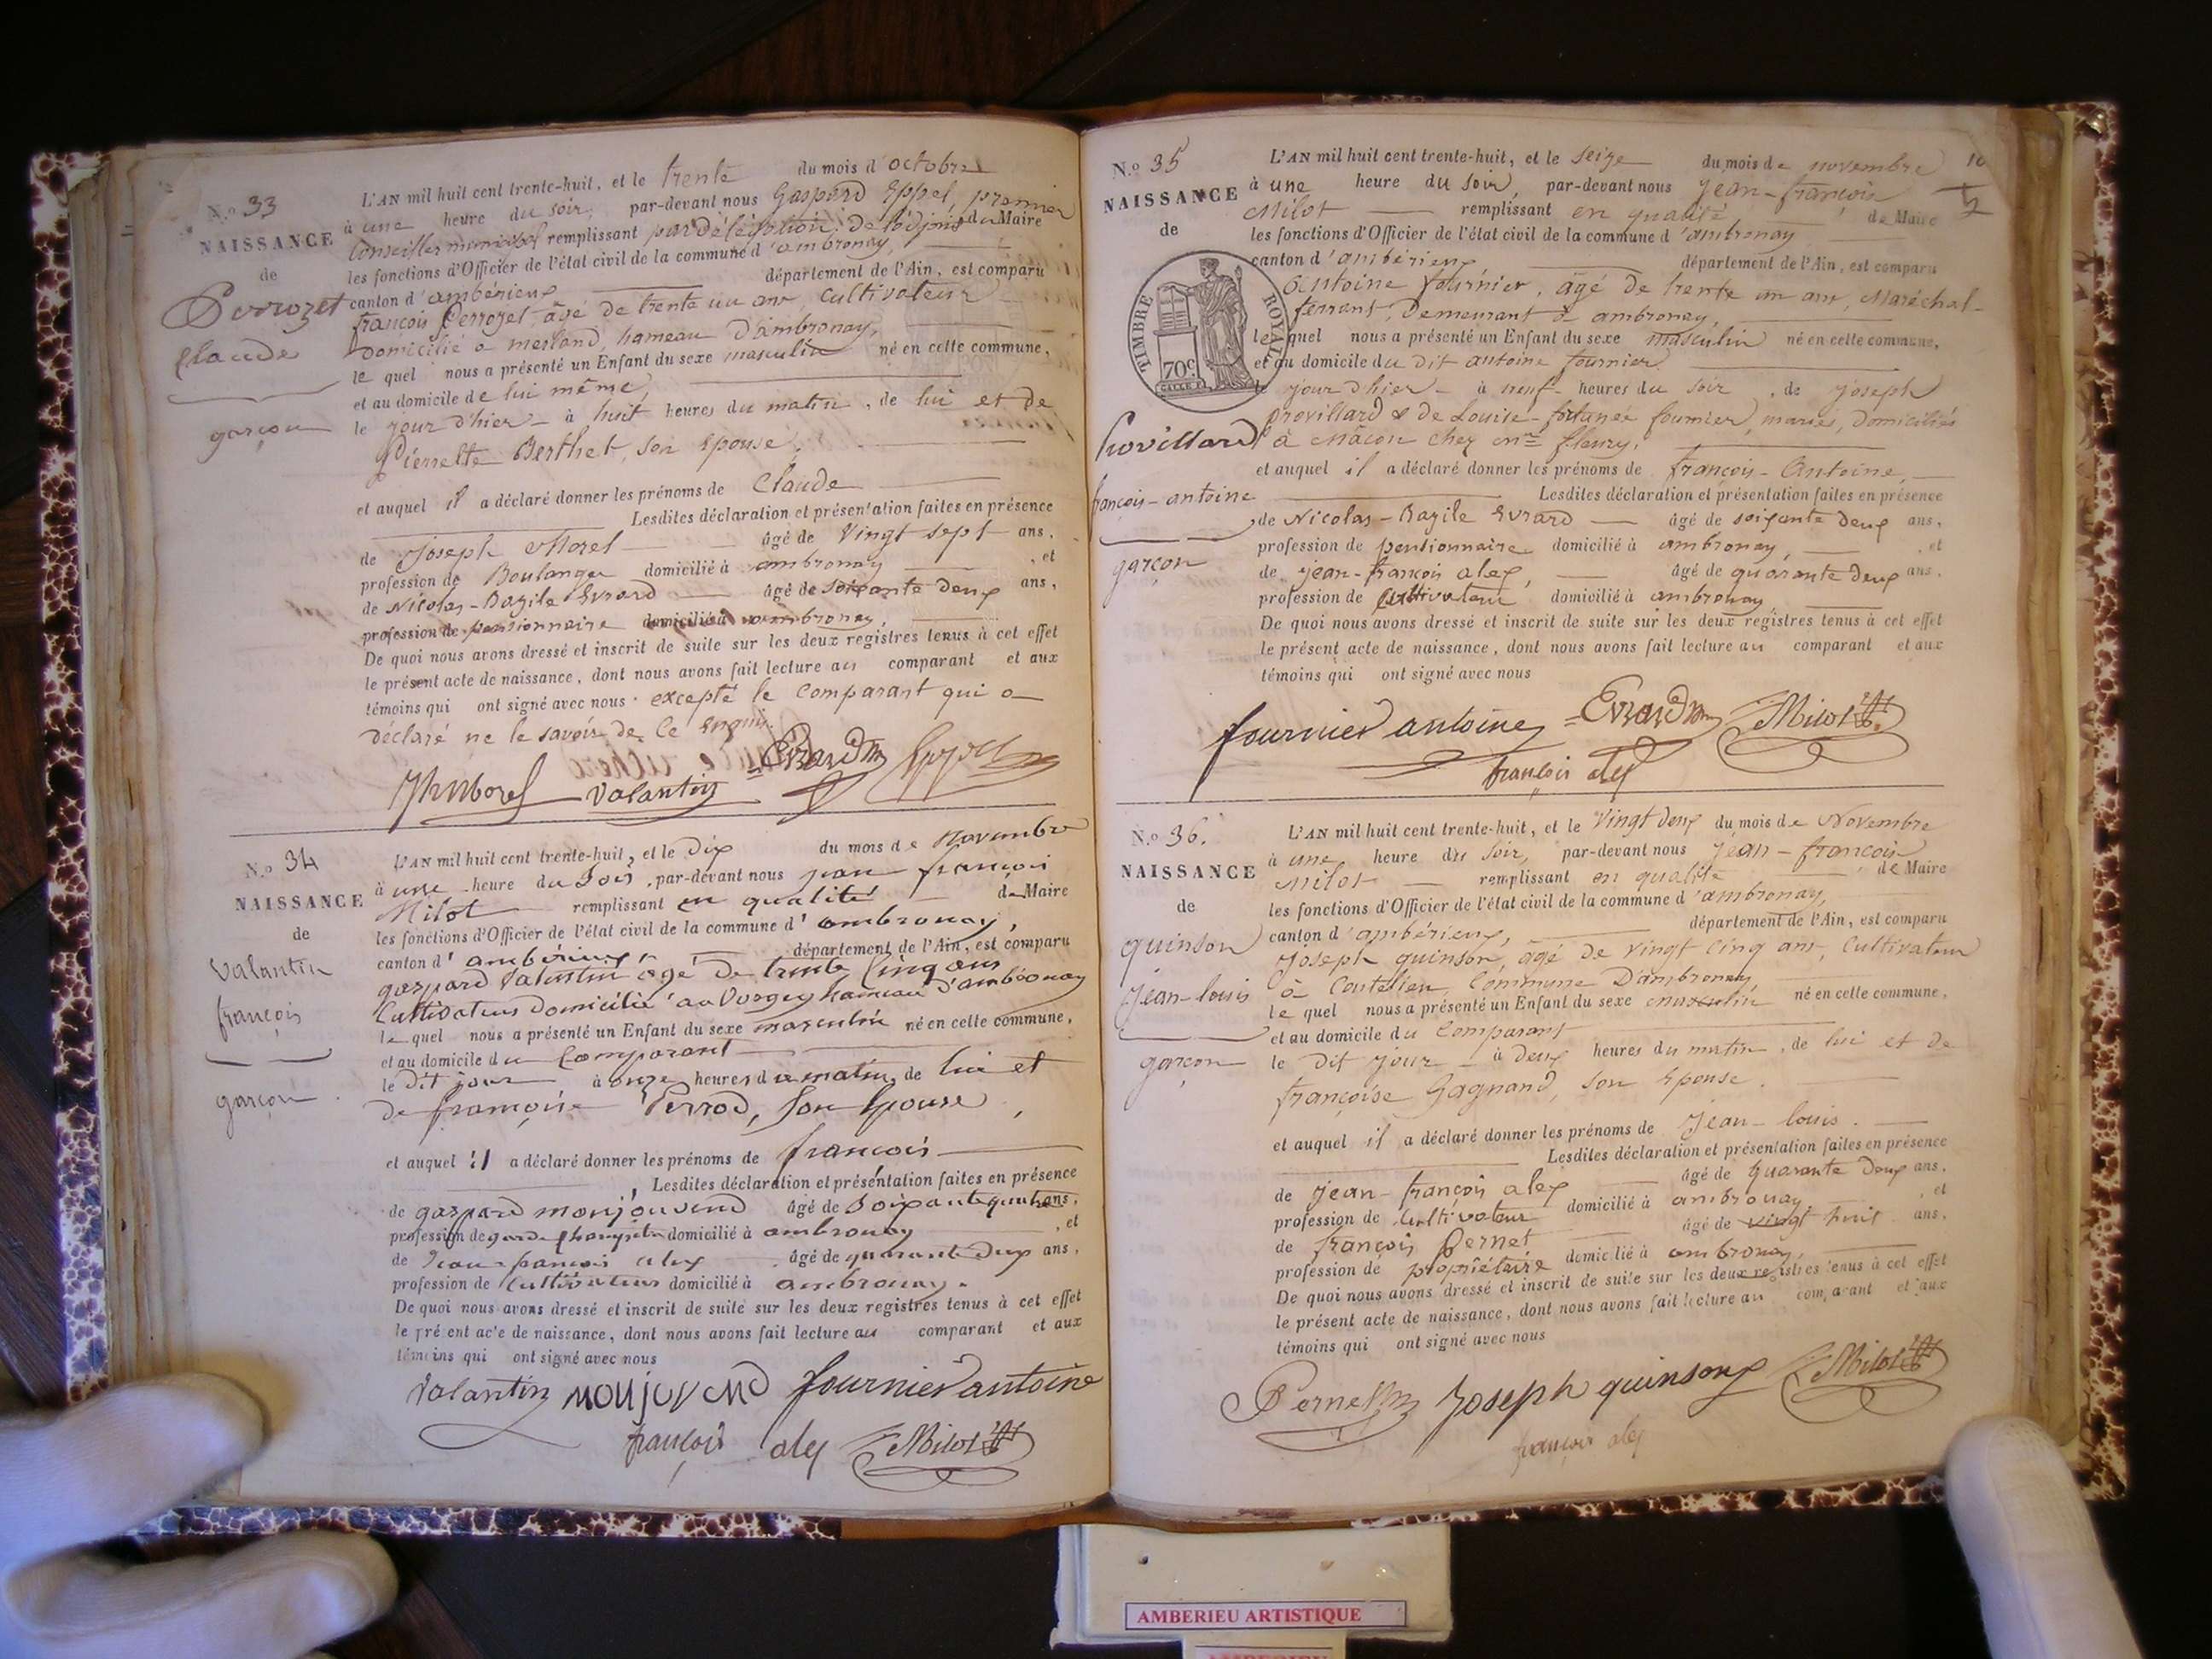 N.o 33
NAISSANCE
de
Perrozet
Claude
garçon
L'AN mil huit cent trente-huit, et le trente du mois d'octobre
à une heure du soir, par-devant nous Gaspard Eppel, premier
Conseiller municipal remplissant par délégation de l'adjoint du Maire
les fonctions d'Officier de l'état civil de la commune d'ambronay,
canton d'ambérieux département de l'Ain, est comparu
françois Perrozet, âgé de trente un ans, Cultivateur
domicilié à merland, hameau d'ambronay,
le quel nous a présenté un Enfant du sexe masculin né en cette commune,
et au domicile de lui même,
le jour d'hier à huit heures du matin, de lui et de
Pierrette Berthet, son épouse,
et auquel il a déclaré donner les prénoms de Claude
Lesdites déclaration et présentation faites en présence
de Joseph Morel âgé de Vingt sept ans,
profession de Boulanger domicilié à ambronay, et
de Nicolas-Bazile Evrard âgé de soixante deux ans,
profession de pensionnaire domicilié à ambronay,
De quoi nous avons dressé et inscrit de suite sur les deux registres tenus à cet effet
le présent acte de naissance, dont nous avons fait lecture au comparant et aux
témoins qui ont signé avec nous excepté le Comparant qui a
déclaré ne le savoir de ce enquis.
Valantin Evrard
N.o 34
NAISSANCE
de
Valantin
françois
garçon
L'AN mil huit cent trente-huit, et le Dix du mois de Novembre
à une heure du Soir, par-devant nous jean françois
Milot remplissant en qualité de Maire
les fonctions d'Officier de l'état civil de la commune d'ambronay,
canton d'ambérieux, département de l'Ain, est comparu
gaspard Valantin agé de trente Cinq ans
Cultivateur domicilié au Vorgey hameau d'ambronay
le quel nous a présenté un Enfant du sexe masculin né en cette commune,
et au domicile du Comparant
le dit jour à onze heures du matin, de lui et
de françoise Perrod, son Epouse,
et auquel il a déclaré donner les prénoms de françois
Lesdites déclaration et présentation faites en présence
de gaspard monjouvend âgé de Soixante quatre ans,
profession de garde champetre domicilié à ambronay, et
de Jean françois alex âgé de quarante deux ans,
profession de Cultivateur domicilié à ambronay.
De quoi nous avons dressé et inscrit de suite sur les deux registres tenus à cet effet
le présent acte de naissance, dont nous avons fait lecture au comparant et aux
témoins qui ont signé avec nous
Valantin monjovend fournier antoine
françois alex Milot
10
N.o 35
NAISSANCE
de
TIMBRE ROYAL
70c
Provillard
françois-antoine
garçon
L'AN mil huit cent trente-huit, et le seize du mois de novembre
à une heure du soir, par-devant nous jean-françois
Milot remplissant en qualité de Maire
les fonctions d'Officier de l'état civil de la commune d'ambronay
canton d'ambérieux département de l'Ain, est comparu
Antoine fournier, âgé de trente un ans, Maréchal-
ferrant, Demeurant à ambronay,
le quel nous a présenté un Enfant du sexe masculin né en cette commune,
et au domicile du dit antoine fournier
le jour d'hier à neuf heures du soir, de joseph
provillard & de Louise-fortunée fournier, mariés, domiciliés
à Mâcon chez mr fleury,
et auquel il a déclaré donner les prénoms de françois-Antoine,
Lesdites déclaration et présentation faites en présence
de Nicolas-Bazile Evrard âgé de soixante deux ans,
profession de pensionnaire domicilié à ambronay, et
de jean-françois alex, âgé de quarante deux ans,
profession de Cultivateur domicilié à ambronay
De quoi nous avons dressé et inscrit de suite sur les deux registres tenus à cet effet
le présent acte de naissance, dont nous avons fait lecture au comparant et aux
témoins qui ont signé avec nous
fournier antoine Evrard Milot
françois alex
N.o 36.
NAISSANCE
de
quinson
Jean-louis
garçon
L'AN mil huit cent trente-huit, et le Vingt deux du mois de Novembre
à une heure du soir, par-devant nous jean-françois
Milot remplissant en qualité de Maire
les fonctions d'Officier de l'état civil de la commune d'ambronay,
canton d'ambérieux, département de l'Ain, est comparu
Joseph quinson, âgé de vingt cinq ans, Cultivateur
à Coutelieu, Commune D'ambronay,
le quel nous a présenté un Enfant du sexe masculin né en cette commune,
et au domicile du Comparant
le dit jour à deux heures du matin, de lui et de
françoise Gagnand, son épouse.
et auquel il a déclaré donner les prénoms de Jean-louis.
Lesdites déclaration et présentation faites en présence
de jean-françois alex âgé de quarante deux ans,
profession de Cultivateur domicilié à ambronay, et
de françois Pernet âgé de vingt huit ans,
profession de propriétaire domicilié à ambronay,
De quoi nous avons dressé et inscrit de suite sur les deux registres tenus à cet effet
le présent acte de naissance, dont nous avons fait lecture au comparant et aux
témoins qui ont signé avec nous
Pernet Joseph quinson Milot
françois alex
AMBERIEU ARTISTIQUE
AMBERIEU